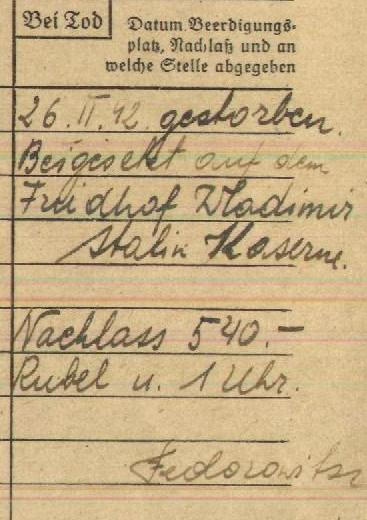 Bei Tod
Datum, Beerdigungs-
platz, Nachlaß und an
welche Stelle abgegeben
26. II. 42. gestorben.
Beigesetzt auf dem
Freidhof Wladimir
Stalin Kaserne.
Nachlass 540.-
Rubel u. 1 Uhr.
Fedorowitsc